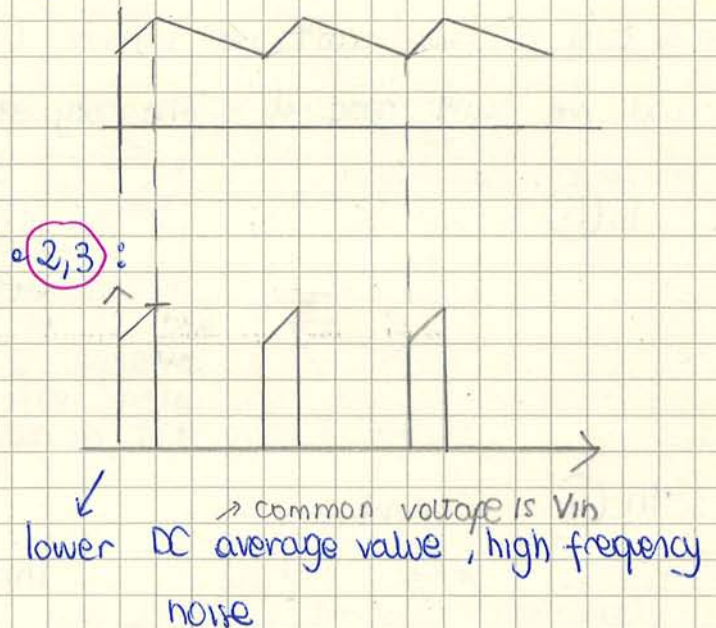 • 2,3 :
↗ common voltage is Vin
lower DC average value , high frequency
noise